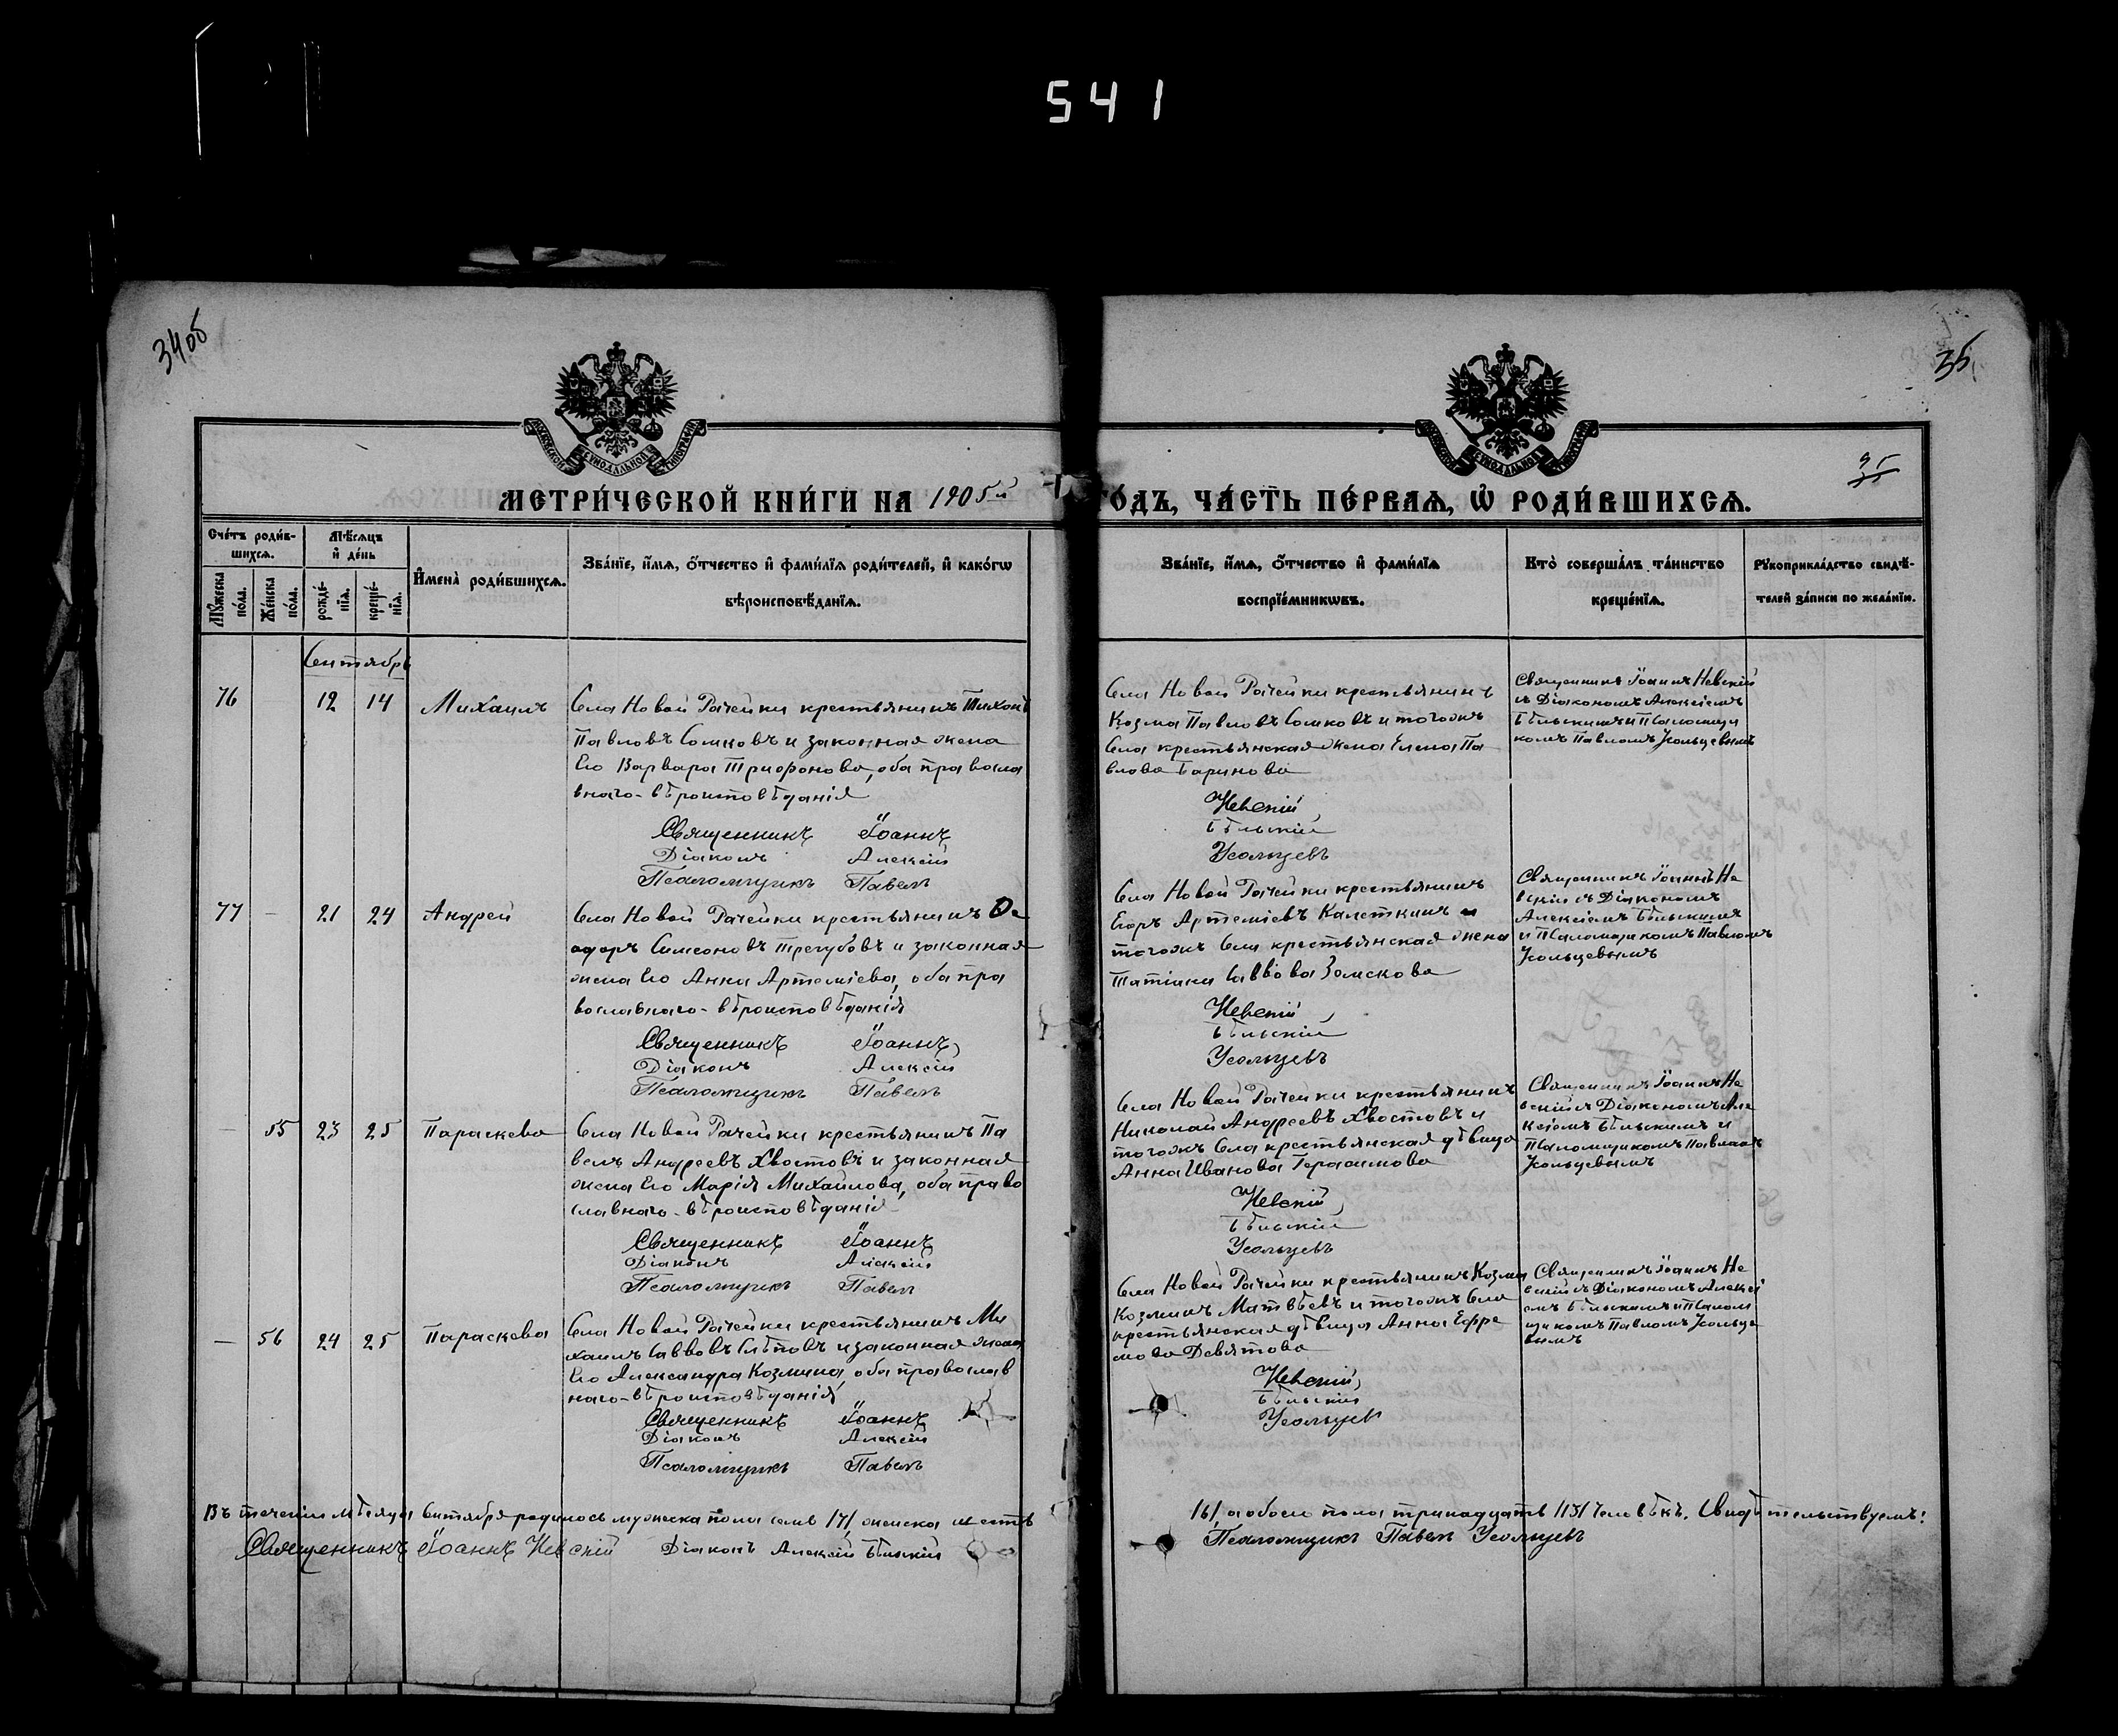 541
34об
35
35
МЕТРИ́ЧЕСКОЙ КНИ́ГИ НА 1905й ГО́ДЪ, ЧА́СТЬ ПЕ́РВАѦ, Ѡ҆ РОДИ́ВШИХСѦ.
Сче́тъ роди́в-
шихсѧ.
Мѣ́сѧцъ
и҆ де́нь
Мꙋ́жеска по́ла.
Же́нска по́ла.
рожде́-
нїѧ.
креще́-
нїѧ.
И҆мена̀ роди́вшихсѧ.
Зва́нїе, и҆́мѧ, ѻ҆́тчество и҆ фами́лїѧ роди́телей, и҆ како́гѡ
вѣроисповѣ́данїѧ.
Зва́нїе, и҆́мѧ, ѻ҆́тчество и҆ фами́лїѧ
воспрїе́мникѡвъ.
Кто̀ соверша́лъ та́инство
креще́нїѧ.
Рꙋкоприкла́дство свидѣ́-
телей за́писи по жела́нїю.
Сентябрь
76
12 14
Михаилъ
Села Новой Рачейки крестьянинъ Тихонъ
Павловъ Сомковъ и законная жена
Его Варвара Трифонова, оба православ
внаго-вѣроисповѣданія
Священникъ Іоаннъ
Діаконъ Алексій
Псаломщикъ Павелъ
Села Новой Рачейки крестьянинъ
Козма Павловъ Сомковъ и тогожъ
Села крестьянская жена Елена Па
влова Баринова
Невскій
Бѣльскій
Усольцевъ
Священникъ Іоаннъ Невскій
съ Діакономъ Алексіемъ
Бѣльскимъ и Псаломщи
комъ Павломъ Усольцевымъ
77 —
21 24
Андрей
Села Новой Рачейки крестьянинъ Ѳе
одоръ Симеоновъ Трегубовъ и законная
жена Его Анна Артеміева, оба пра
вославнаго-вѣроисповѣданія
Священникъ Іоаннъ
Діаконъ Алексій
Псаломщикъ Павелъ
Села Новой Рачейки крестьянинъ
Егоръ Артеміевъ Калеткинъ и
тогожъ Села крестьянская жена
Татіана Саввова Замскова
Невскій
Бѣльскій
Усольцевъ
Священникъ Іоаннъ Не
вскій съ Діакономъ
Алексіемъ Бѣльскимъ
и Псаломщикомъ Павломъ
Усольцевымъ
— 55
23 25
Параскева
Села Новой Рачейки крестьянинъ Па
велъ Андреевъ Хвостовъ и законная
жена Его Марія Михайлова, оба право
славнаго-вѣроисповѣданія
Священникъ Іоаннъ
Діаконъ Алексій
Псаломщикъ Павелъ
Села Новой Рачейки крестьянинъ
Николай Андреевъ Хвостовъ и
тогожъ Села крестьянская дѣвица
Анна Иванова Герасимова
Невскій
Бѣльскій
Усольцевъ
Священникъ Іоаннъ Не
вскій съ Діакономъ Але
ксіемъ Бѣльскимъ и
Псаломщикомъ Павломъ
Усольцевымъ
— 56
24 25
Параскева
Села Новой Рачейки крестьянинъ Ми
хаилъ Саввовъ Слѣповъ и законная жена
Его Александра Козмина, оба православ
наго-вѣроисповѣданія
Священникъ Іоаннъ
Діаконъ Алексій
Псаломщикъ Павелъ
Села Новой Рачейки крестьянинъ Козма
Козминъ Матвѣевъ и тогожъ Села
крестьянская дѣвица Анна Ефре
мова Девятова
Невскій
Бѣльскій
Усольцевъ
Священникъ Іоаннъ Не
вскій съ Діакономъ Алексі
емъ Бѣльскимъ и Псалом
щикомъ Павломъ Усольце
вымъ
Въ теченіи мѣсяца Сентября родилось мужеска пола семь /7/, женска шесть /6/, а обоего пола тринадцать /13/ человѣкъ. Свидѣтельствуемъ:
Священникъ Іоаннъ Невскій Діаконъ Алексій Бѣльскій Псаломщикъ Павелъ Усольцевъ